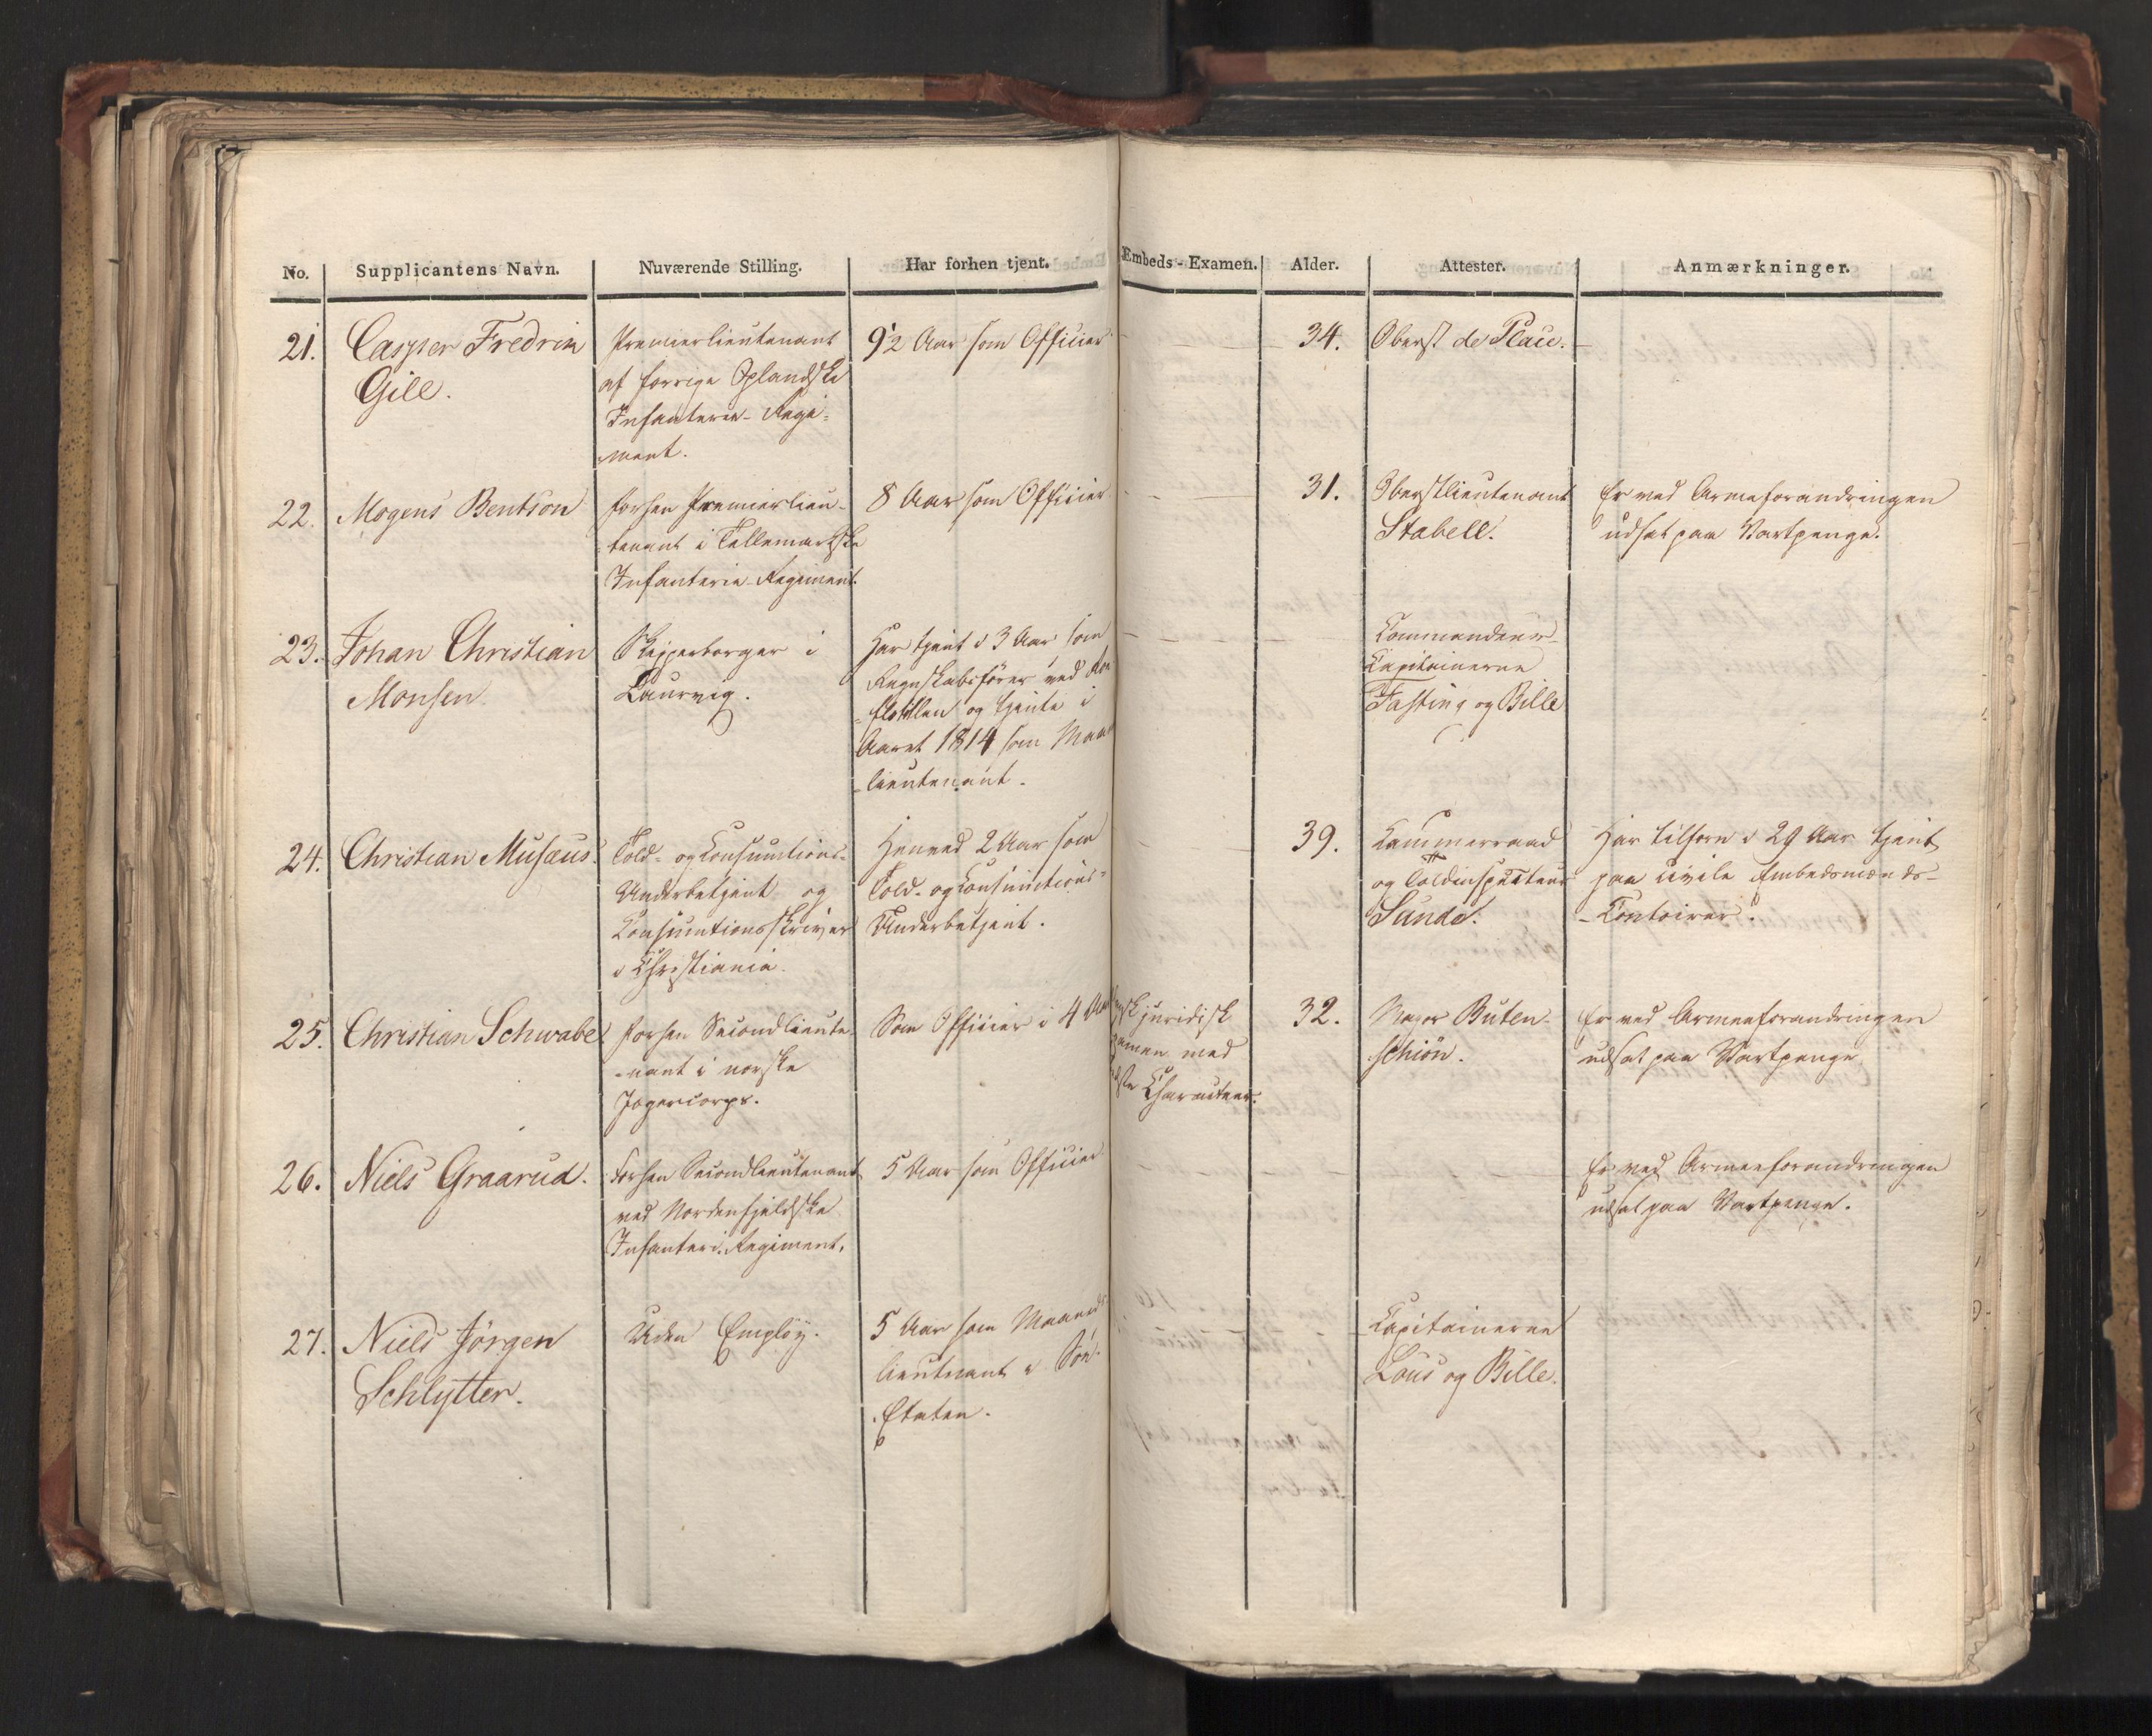 No. Supplicantens Navn. Nuværende Stilling. Har forhen tjent. Embeds-Examen. Alder. Attester. Anmærkninger.
21. Casper Fredrik
Gill.
Premierlieutenant
af forrige Oplandske
Infanterie-Regi-
ment.
9½ Aar som Officier
34.
Oberst de Place.
22. Mogens Bentson
forhen Premierlieu-
tenant i Tellemarkske
Infanterie-Regiment.
8 Aar som Officier
31.
Oberstlieutenant
Stabell.
Er ved Armeforandringen
udsat paa Vartpenge.
23. Johan Christian
Monsen
Skipperborger i
Laurvig.
Har tjent i 3 Aar som
Regnskabsfører ved
flotillen og tjente i
Aaret 1814 som
lieutenant.
Commandeur-
Capitainerne
Fasting og Bille
24. Christian Musæus.
Told- og Consumtions-
Underbetjent og
Consumtionsskriver
i Christiania.
Henved 2 Aar som
Told- og Consumtions-
Underbetjent.
39.
Kammerraad
og Toldinspecteur
Sundt.
Har tilforn i 29 Aar tjent
paa civile Embedsmænds-
Contoirer.
25. Christian Schwabe
forhen Secondlieute-
nant i norske
Jægercorps.
Som Officier i 4 Aar
juridisk
Examen med
Charakteer.
32.
Major Buten-
schiön.
Er ved Armeeforandringen
udsat paa Vartpenge
26. Niels Graarud.
Forhen Secondlieutenant
ved Nordenfjeldske
Infanteri. Regiment.
5 Aar som Officier
Er ved Armeeforandringen
udsat paa Vartpenge.
27. Niels Jörgen
Schlytter.
Uden Employ.
5 Aar som Maaneds-
lieutnant i Söe-
Etaten.
Capitainerne
Lous og Bille.